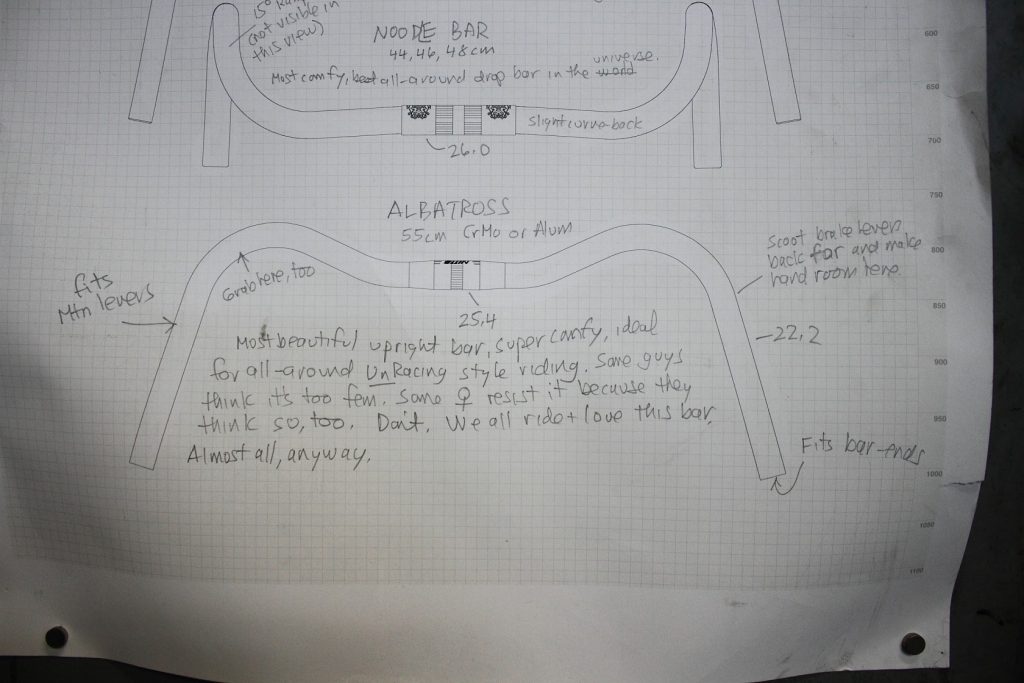 15°
(not visible in
this view)
NOODLE BAR
44, 46, 48 cm
universe.
Most comfy, best all-around drop bar in the world
slight curve-back
26.0
600
650
700
750
800
850
900
950
1000
1050
1100
ALBATROSS
55cm CrMo or Alum
Grab here, too
fits
Mtn levers
25.4
Scoot brake lever
back far and make
hand room here.
22.2
Most beautiful upright bar, super comfy, ideal
for all-around UnRacing style riding. Some guys
think it's too fem. Some ♀ resist it because they
think so, too. Don't. We all ride + love this bar.
Almost all, anyway.
Fits bar-ends